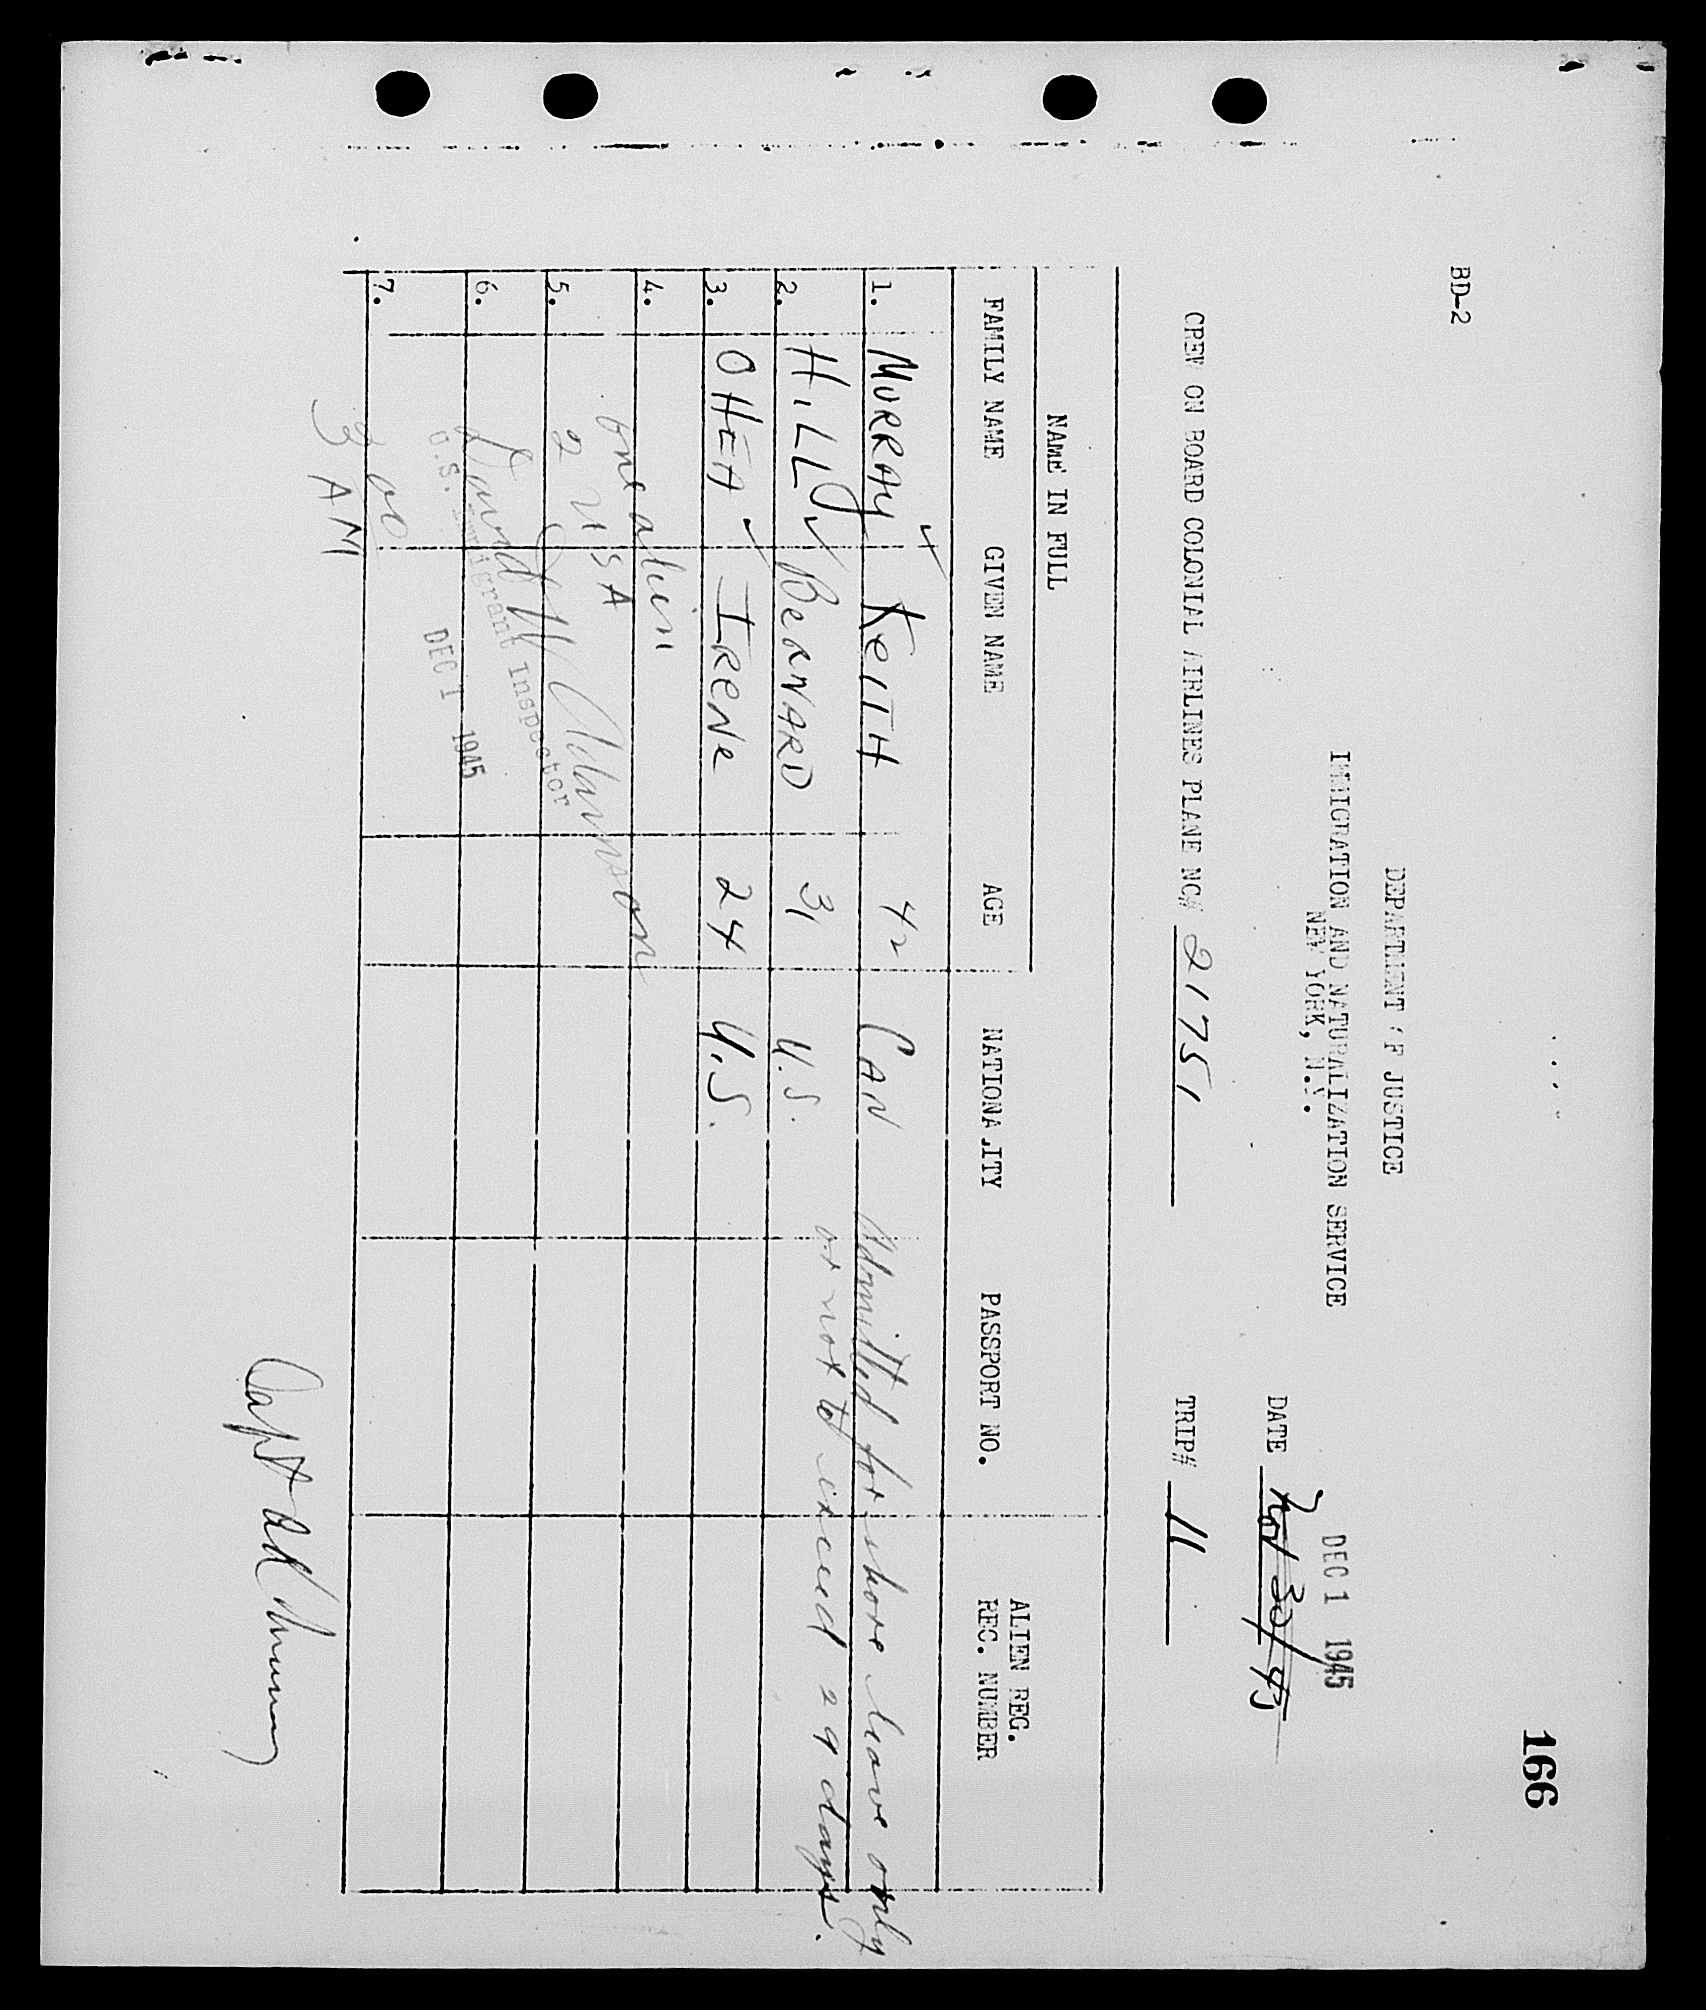 166
BD-2
DEPARTMENT OF JUSTICE
IMMIGRATION AND NATURALIZATION SERVICE
NEW YORK, N.Y.
DEC 1 1945
DATE Nov 30/45
CREW ON BOARD COLONIAL AIRLINES PLANE NC# 21751 TRIP# 11
NAME IN FULL
FAMILY NAME GIVEN NAME AGE NATIONALITY PASSPORT NO. ALIEN REG. REC. NUMBER
1. MURRAY KEITH 42 CAN Admitted for shore leave only
2. HILL BERNARD 31 U.S. or not to exceed 29 days.
3. OHEA IRENE 24 U.S.
4. one alien
5. 2 USA
6. David W Adamson
U.S. Immigrant Inspector
DEC 1 1945
7. 3 00
AM
Capt Murray